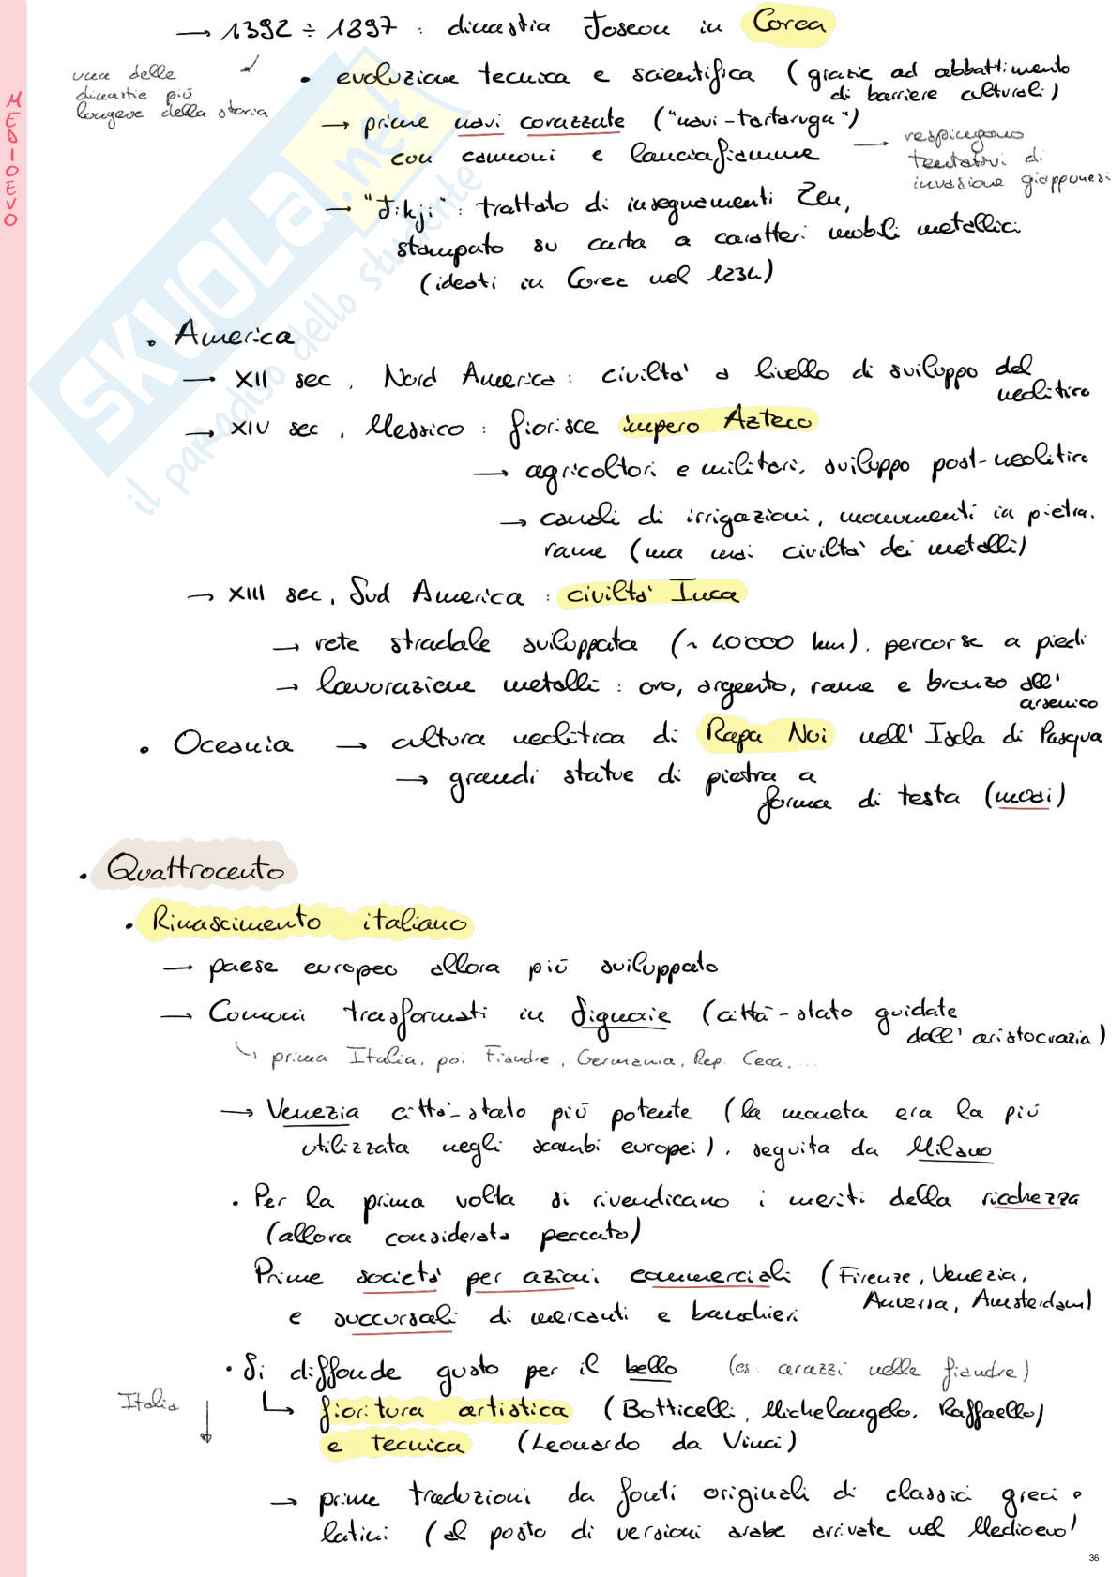 → 1392 ÷ 1897 : dinastia Joseon in Corea
una delle
dinastie più
longeve della storia
• evoluzione tecnica e scientifica (grazie ad abbattimento
di barriere culturali)
→ prime navi corazzate ("navi-tartaruga")
con cannoni e lanciafiamme
→ respingono
tentativi di
invasione giapponesi
→ "Jikji": trattato di insegnamenti Zen,
stampato su carta a caratteri mobili metallici
(ideati in Corea nel 1234)
MEDIOEVO
SKUOLA.net
il paradiso dello studente
• America
→ XII sec, Nord America: civiltà a livello di sviluppo del
neolitico
→ XIV sec, Messico: fiorisce impero Azteco
→ agricoltori e militari, sviluppo post-neolitico
→ canali di irrigazioni, monumenti in pietra,
rame (ma mai civiltà dei metalli)
→ XIII sec, Sud America: civiltà Inca
→ rete stradale sviluppata (~ 40000 km), percorse a piedi
→ lavorazione metalli: oro, argento, rame e bronzo all'
arsenico
• Oceania → cultura neolitica di Rapa Nui nell'Isola di Pasqua
→ grandi statue di pietra a
forma di testa (moai)
• Quattrocento
• Rinascimento italiano
→ paese europeo allora più sviluppato
→ Comuni trasformati in Signorie (città-stato guidate
dall'aristocrazia)
↳ prima Italia, poi Fiandre, Germania, Rep. Ceca, ...
→ Venezia città-stato più potente (la moneta era la più
utilizzata negli scambi europei), seguita da Milano
• Per la prima volta si rivendicano i meriti della ricchezza
(allora considerata peccato)
Prime società per azioni commerciali (Firenze, Venezia,
Anversa, Amsterdam)
e succursali di mercanti e banchieri
• Si diffonde gusto per il bello (es. arazzi nelle fiandre)
Italia ↓
↳ fioritura artistica (Botticelli, Michelangelo, Raffaello)
e tecnica (Leonardo da Vinci)
→ prime traduzioni da fonti originali di classici greci e
latini (al posto di versioni arabe arrivate nel Medioevo)
36